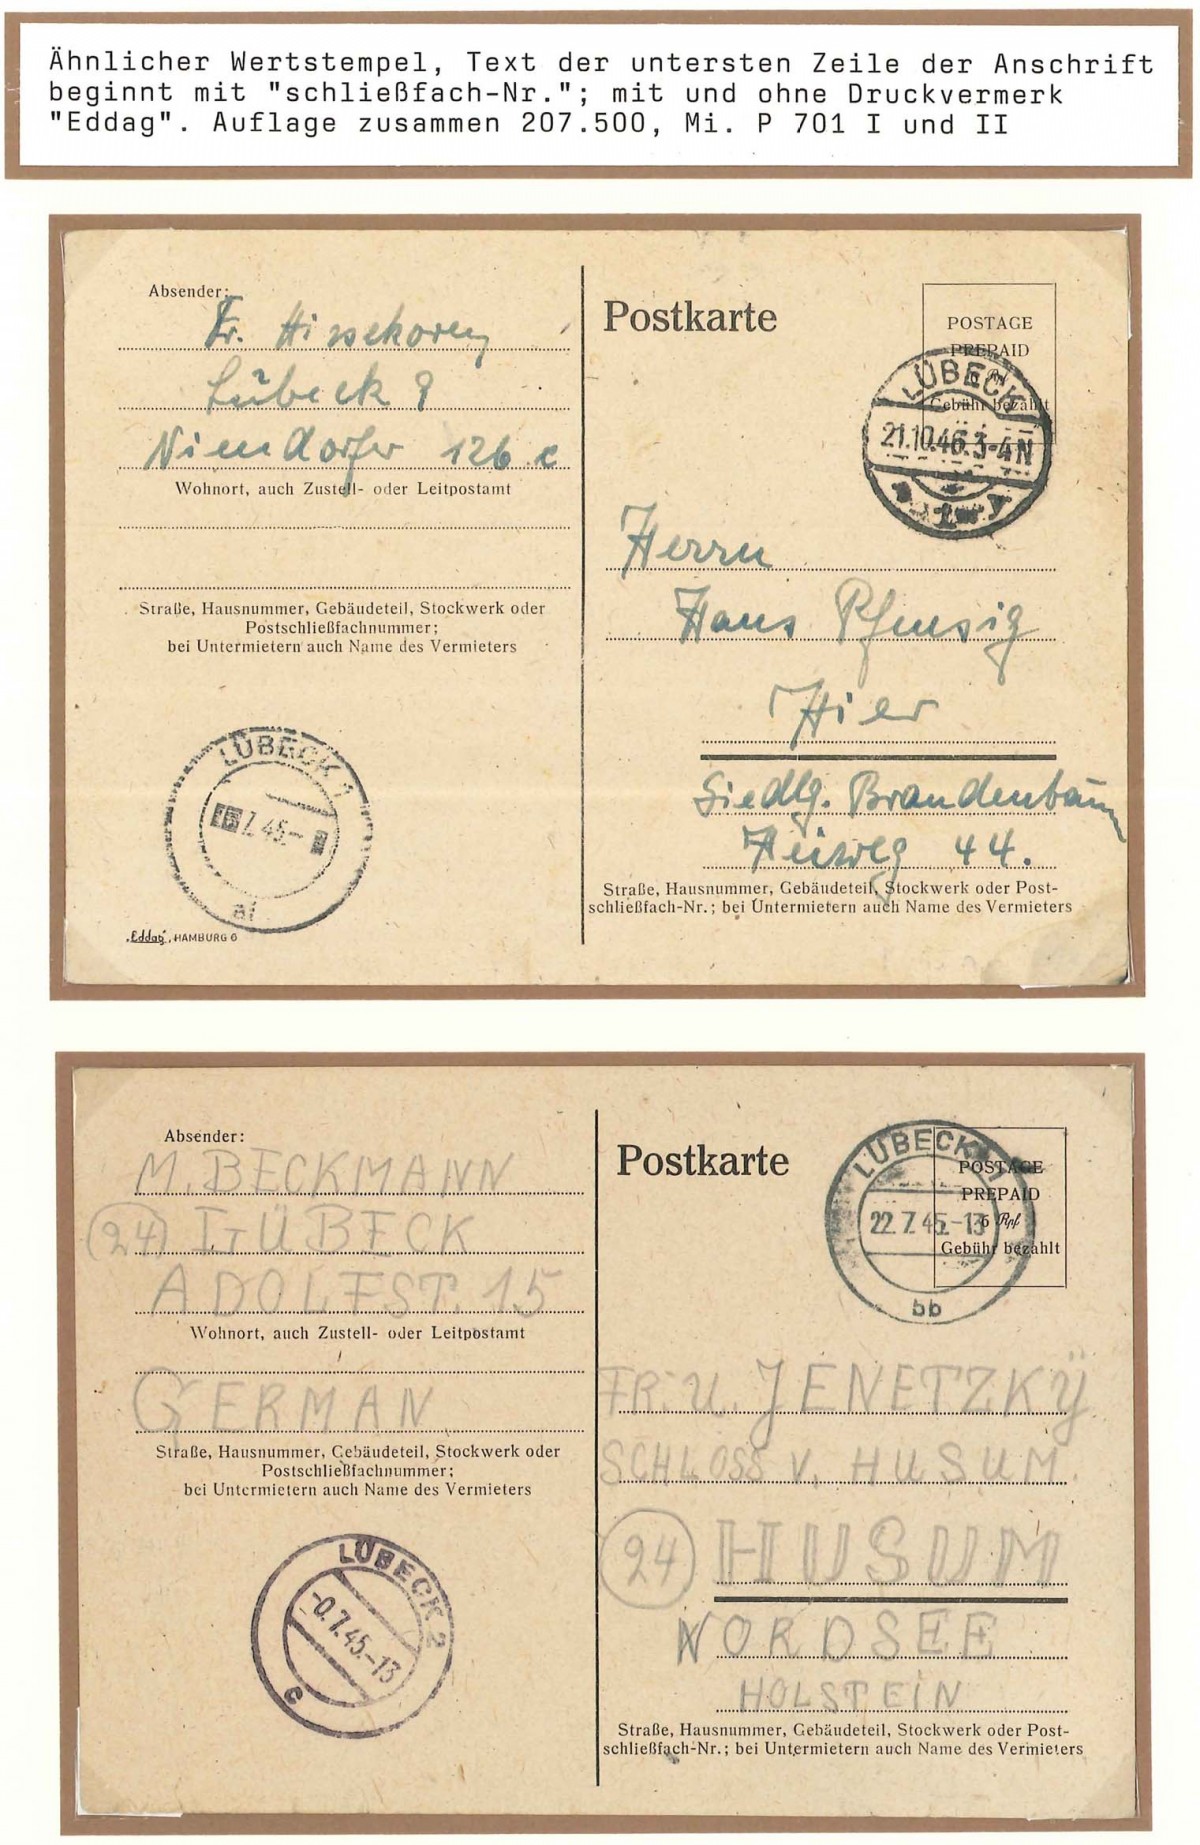 Ähnlicher Wertstempel, Text der untersten Zeile der Anschrift
beginnt mit "schließfach-Nr."; mit und ohne Druckvermerk
"Eddag". Auflage zusammen 207.500, Mi. P 701 I und II
Absender:
Fr.
Lübeck
Niendorfer 126 c
Wohnort, auch Zustell- oder Leitpostamt
Straße, Hausnummer, Gebäudeteil, Stockwerk oder
Postschließfachnummer;
bei Untermietern auch Name des Vermieters
LÜBECK 1
7.45.-
„Eddag“, HAMBURG 6
Postkarte
POSTAGE
PREPAID
6 Rpf
Gebühr bezahlt
LÜBECK
21.10.46.3-4N
Herrn
Hans
Hier
Siedlg. Brandenbaum
44.
Straße, Hausnummer, Gebäudeteil, Stockwerk oder Post-
schließfach-Nr.; bei Untermietern auch Name des Vermieters
Absender:
M. BECKMANN
(24) LÜBECK
ADOLFST. 15
Wohnort, auch Zustell- oder Leitpostamt
GERMAN
Straße, Hausnummer, Gebäudeteil, Stockwerk oder
Postschließfachnummer;
bei Untermietern auch Name des Vermieters
LÜBECK 2
-0.7.45.-13
c
Postkarte
POSTAGE
PREPAID
6 Rpf
Gebühr bezahlt
LÜBECK 1
22.7.45.-13
bb
FR. U. JENETZKÿ
SCHLOSS V. HUSUM.
(24) HUSUM
NORDSEE
HOLSTEIN
Straße, Hausnummer, Gebäudeteil, Stockwerk oder Post-
schließfach-Nr.; bei Untermietern auch Name des Vermieters